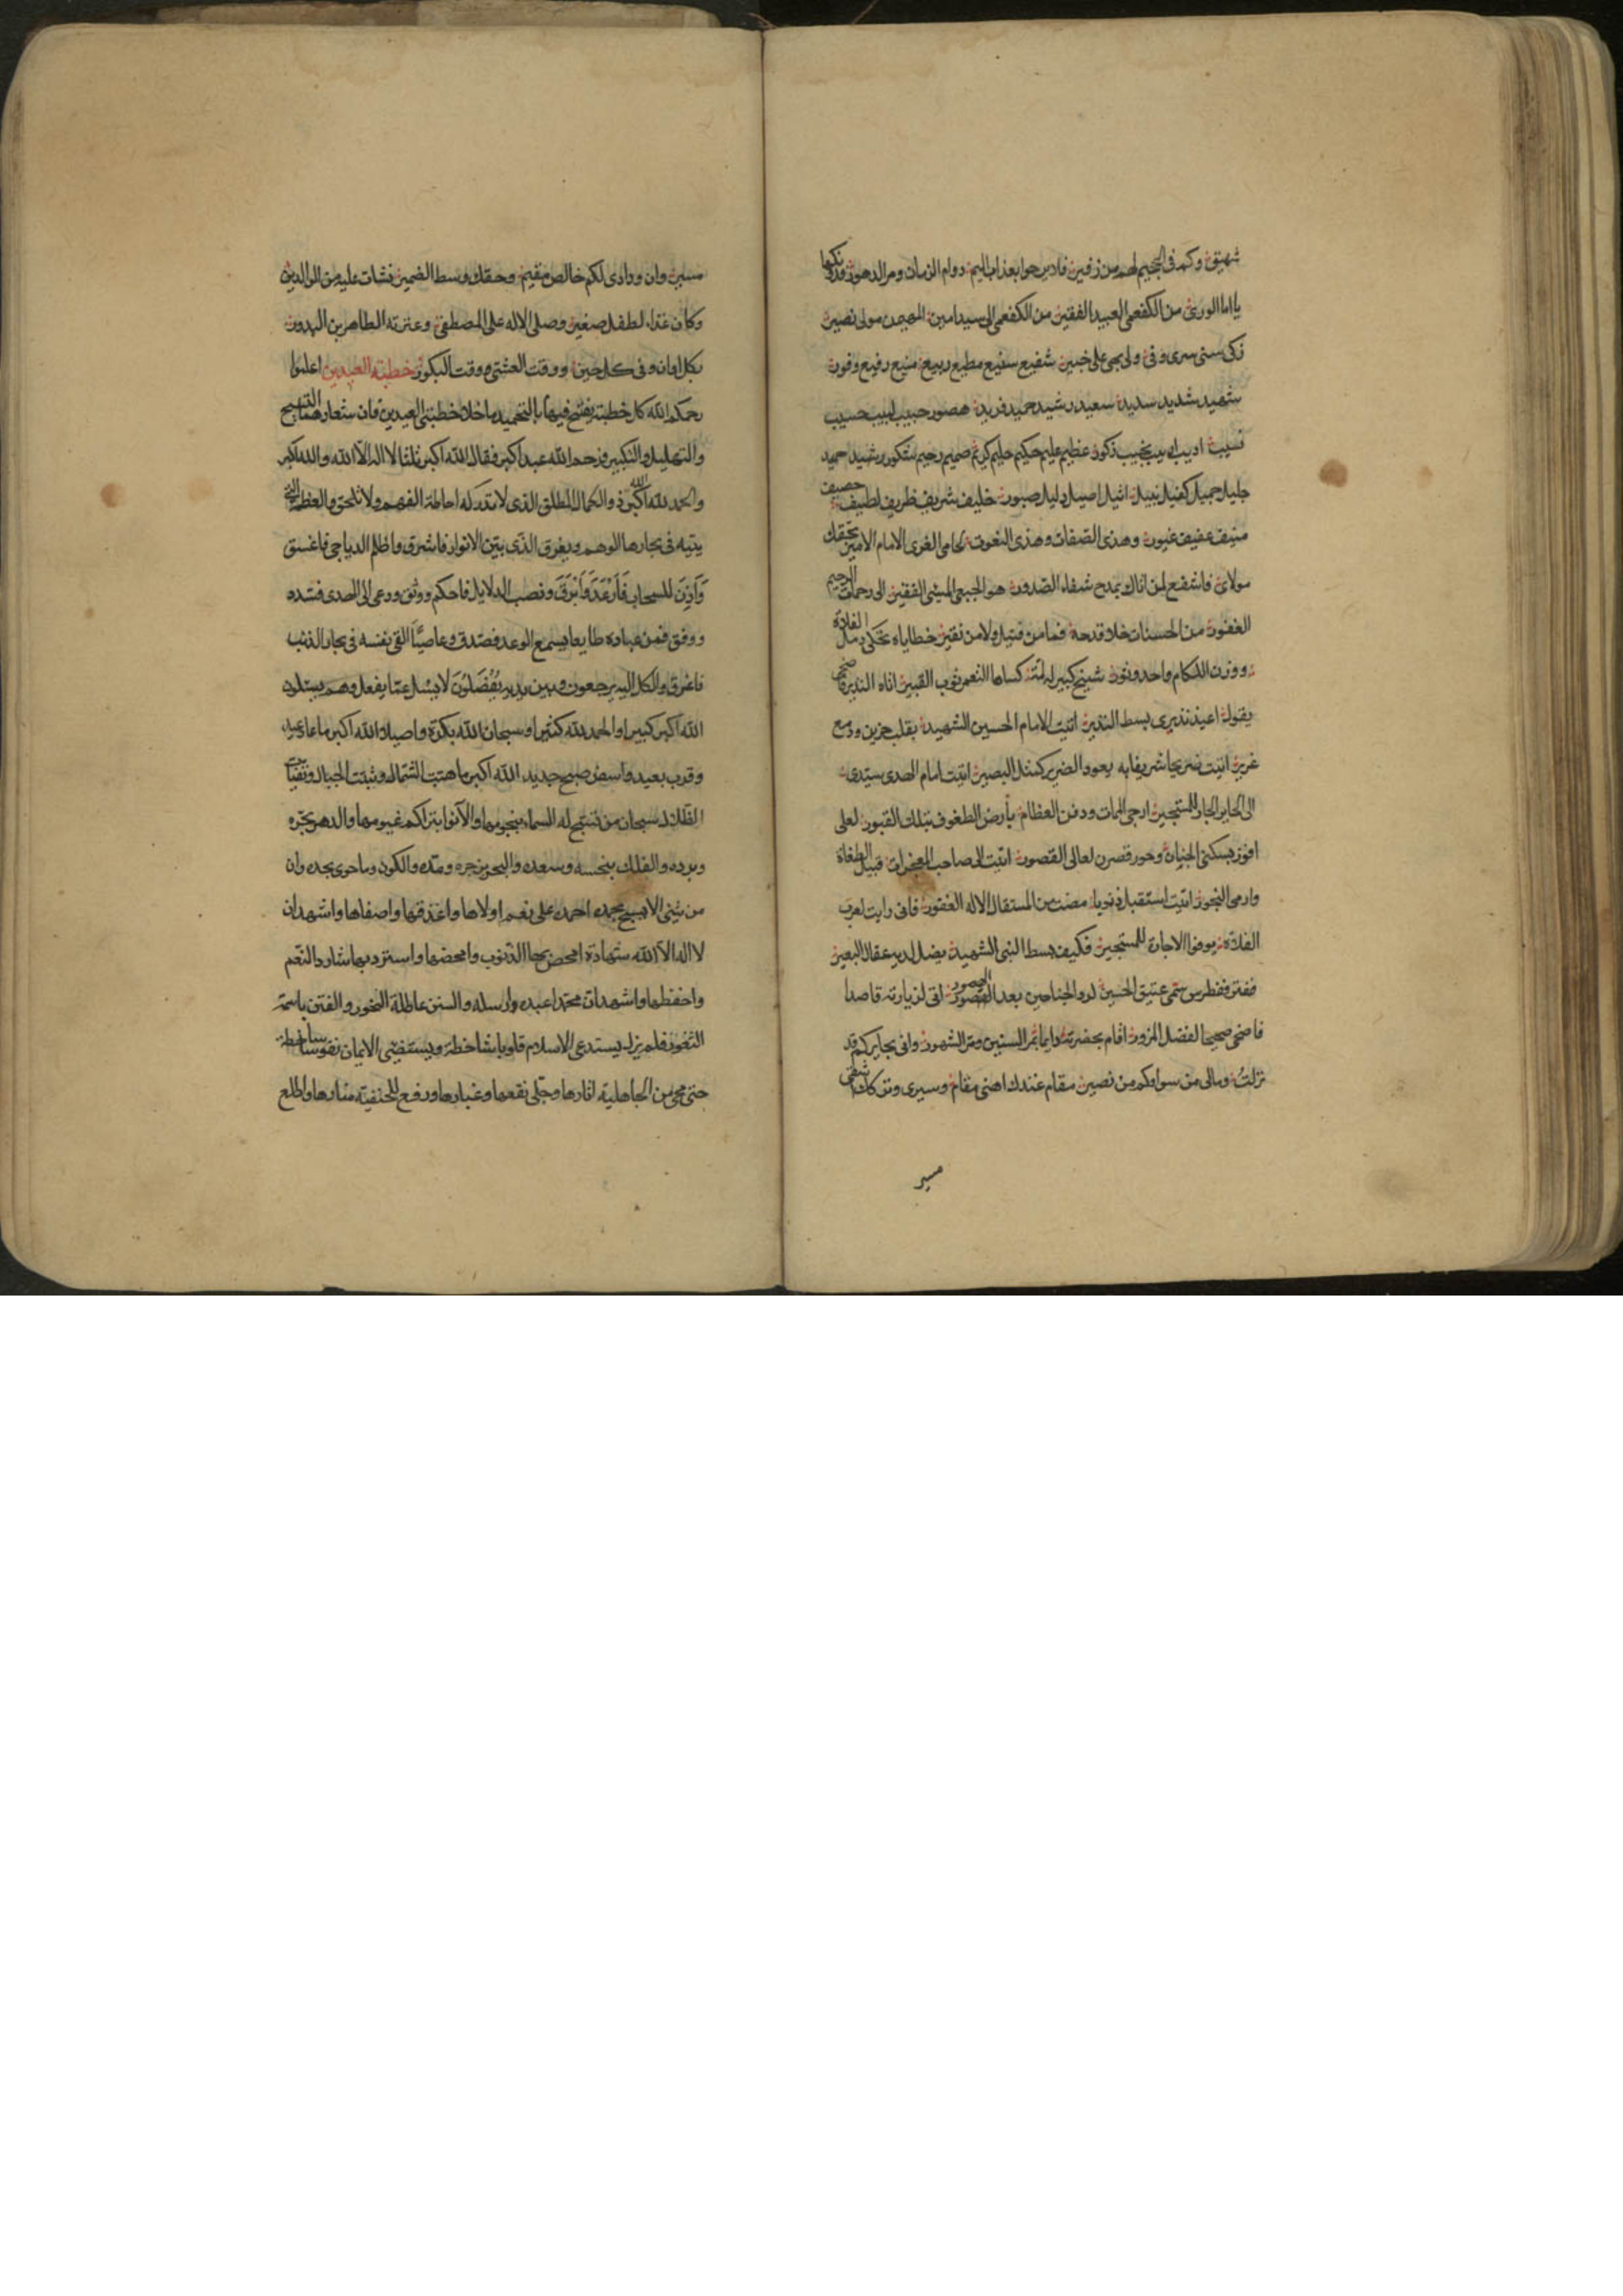 شهيق وكم فى الجحيم لهم من زفير فاديرحوا بعذاب اليم دوام الزمان ومر الدهور ودونكها
يا اما الورى من الكفعمى العبيد الفقير من الكفعمى الى سيد امين المهيمن مولى نصير
زكى سنى سرى وفى ولى بهى على خبير شفيع سفيع مطيع ربيع منيع رفيع وقور
شهيد شديد سديد سعيد رشيد حميد فريد هصور حبيب لبيب حسيب
نسيب اديب اريب نجيب ذكور عظيم عليم حكيم حليم كريم صميم رحيم شكور رشيد حميد
جليل جميل كفيل نبيل اثيل اصيل دليل صبور خليف شريف ظريف لطيف حصيف
منيف عفيف غيور وهذى الصفات وهذى النعوت لحامى الغرى الامام الامير بحقك
مولاى فاشفع لمن اتاك بمدح شفاء الصدور هو الجبعى المسيئ الفقير الى رحمات الرحيم
الغفور من الحسنات خلا قدحه فما من فتيل ولا من نقير خطاياه تحكى رمال الفلاة
ووزن اللكام واحد وثور شيخ كبير له لمة كساها التعمير ثوب القتير اتاه النذير فاضحى
يقول اعيذ نذيرى بسط النذير اتيت الامام الحسين الشهيد بقلب حزين ودمع
غزير اتيت ضريحا شريفا به يعود الضرير كمثل البصير اتيت امام الهدى سيدى
الى الحاير الجار للمستجير ارجى الممات ودفن العظام بأرض الطفوف بتلك القبور لعلى
افوز بسكنى الجنان وحور قصرن لعالى القصور اتيت الى صاحب المعجزات قتيل الطغاة
وارمى النحور اتيت استقيل ذنوبا مضت من المستقال الاله الغفور فانى رايت لعرب
الفلاة يوفوا الاجارة للمستجير فكيف بسط النبى الشهيد يضل لديه عقال البعير
ففطرس سمى عتيق الحسين لرد الجناحين بعد القصور اتى لزيارته قاصدا
فاضحى صحيحا لفضل المزور اقام بحضرته دايما بمر السنين ومر الشهور وانى بحايركم قد
نزلت ومالى من سواكم من نصير مقام عندك اهنى مقام وسيرى وتركك اشقى
مسير
مسير وان ودادى لكم خالص مقيم وحقك وسط الضمير نشات عليه من الوالدين
وكان غذاء لطفل صغير وصلى الاله على المصطفى وعترته الطاهرين البدور
بكل اوان وفى كل حين ووقت العشى ووقت البكور خطبة العيدين اعلموا
رحمكم الله كل خطبة يفتتح فيها بالتحميد ما خلا خطبتى العيدين فان شعارهما التسبيح
والتهليل والتكبير فرحم الله عبدا كبر فقال الله اكبر ثلثا لا اله الا الله والله اكبر
والحمد لله الله اكبر ذو الكمال المطلق الذى لا تدركه احاطة الفهم ولا تلحق والعظمة التى
يتيه فى بحارها الوهم ويغرق الذى بين الانوار فاشرق واظلم الدياجى فاغسق
وَأذِنَ للسحاب فَأرْعَدَ وَأبْرَقَ ونصب الدلايل فاحكم ووثق ودعى الى الهدى فسدد
ووفق فمن عباده طايعا يسمع الوعد فصدق وعاصيا القى نفسه فى بحار الذنب
فاغرق والكل اليه يرجعون وبين يديه يُفْصَلُونَ لا يسئل عما يفعل وهم يسئلون
الله اكبر كبيرا والحمد لله كثيرا وسبحان الله بكرة واصيلا والله اكبر ما عاد عيد
وقرب بعيد واسفر صبح جديد الله اكبر ما هبت الشمال وثبتت الجبال وتفيات
الظلال سبحان من تسبح له السماء بنجومها والانوا بتراكم غيومها والدهر بحره
وبرده والفلك بنحسه وسعده والبحر بزجره ومده والكون وما حوى بجده وان
من شيئ الا يسبح بحمده احمده على نعم اولاها واغدقها واصفاها واشهد ان
لا اله الا الله شهادة امحص بها الذنوب وامحضها واستزيد بها شارد النعم
واحفظها واشهد ان محمدا عبده ارسله والسنن عاطلة النحور والفتن باسمة
الثغور فلم يزل يستدعى الاسلام قلوبا شاخطة ويستفضى الايمان نفوسا ساخطة
حتى محى من الجاهلية اثارها وجلى نقعها وغبارها ورفع للحنفية منارها واطلع